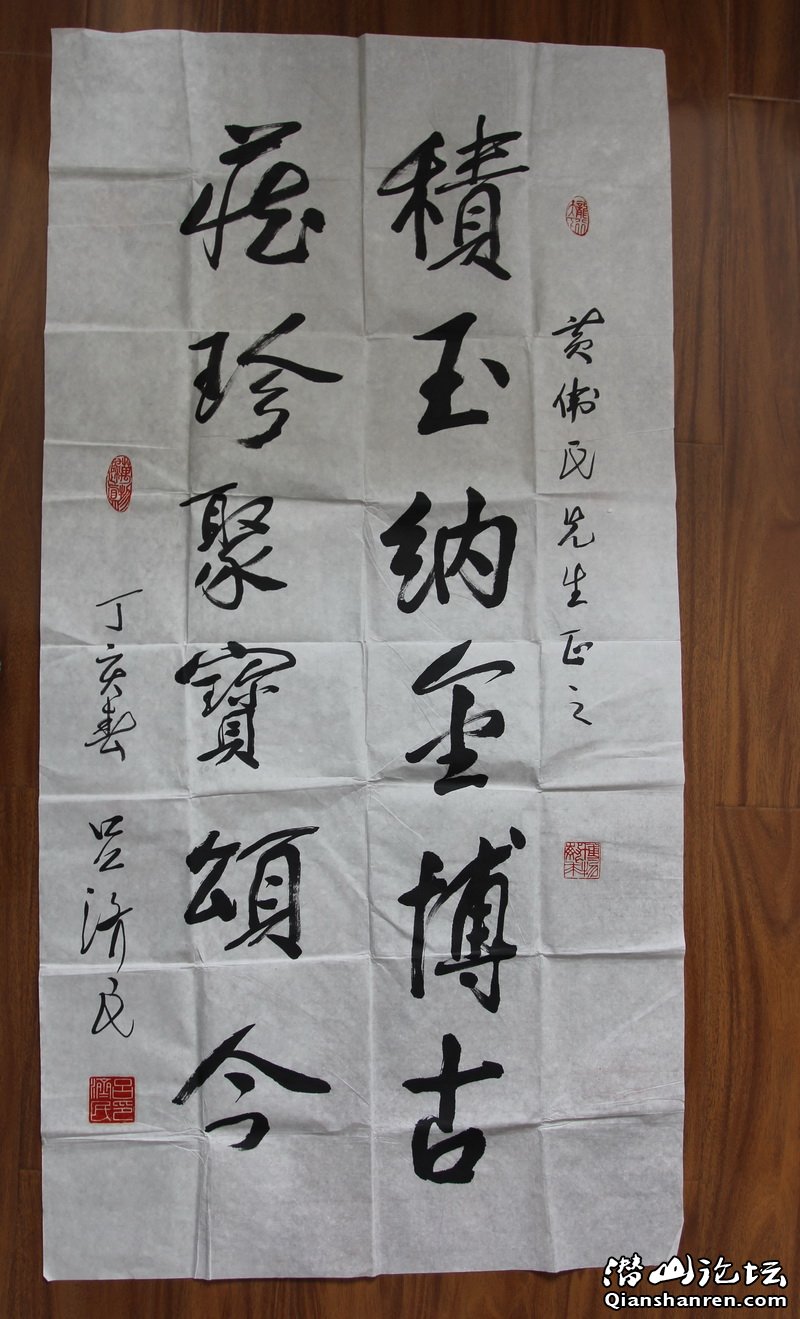 黄伟民先生正之
積玉纳金博古
藏珍聚寶頌今
丁亥春 吕济民
吕济民印
潜山论坛
Qianshanren.com